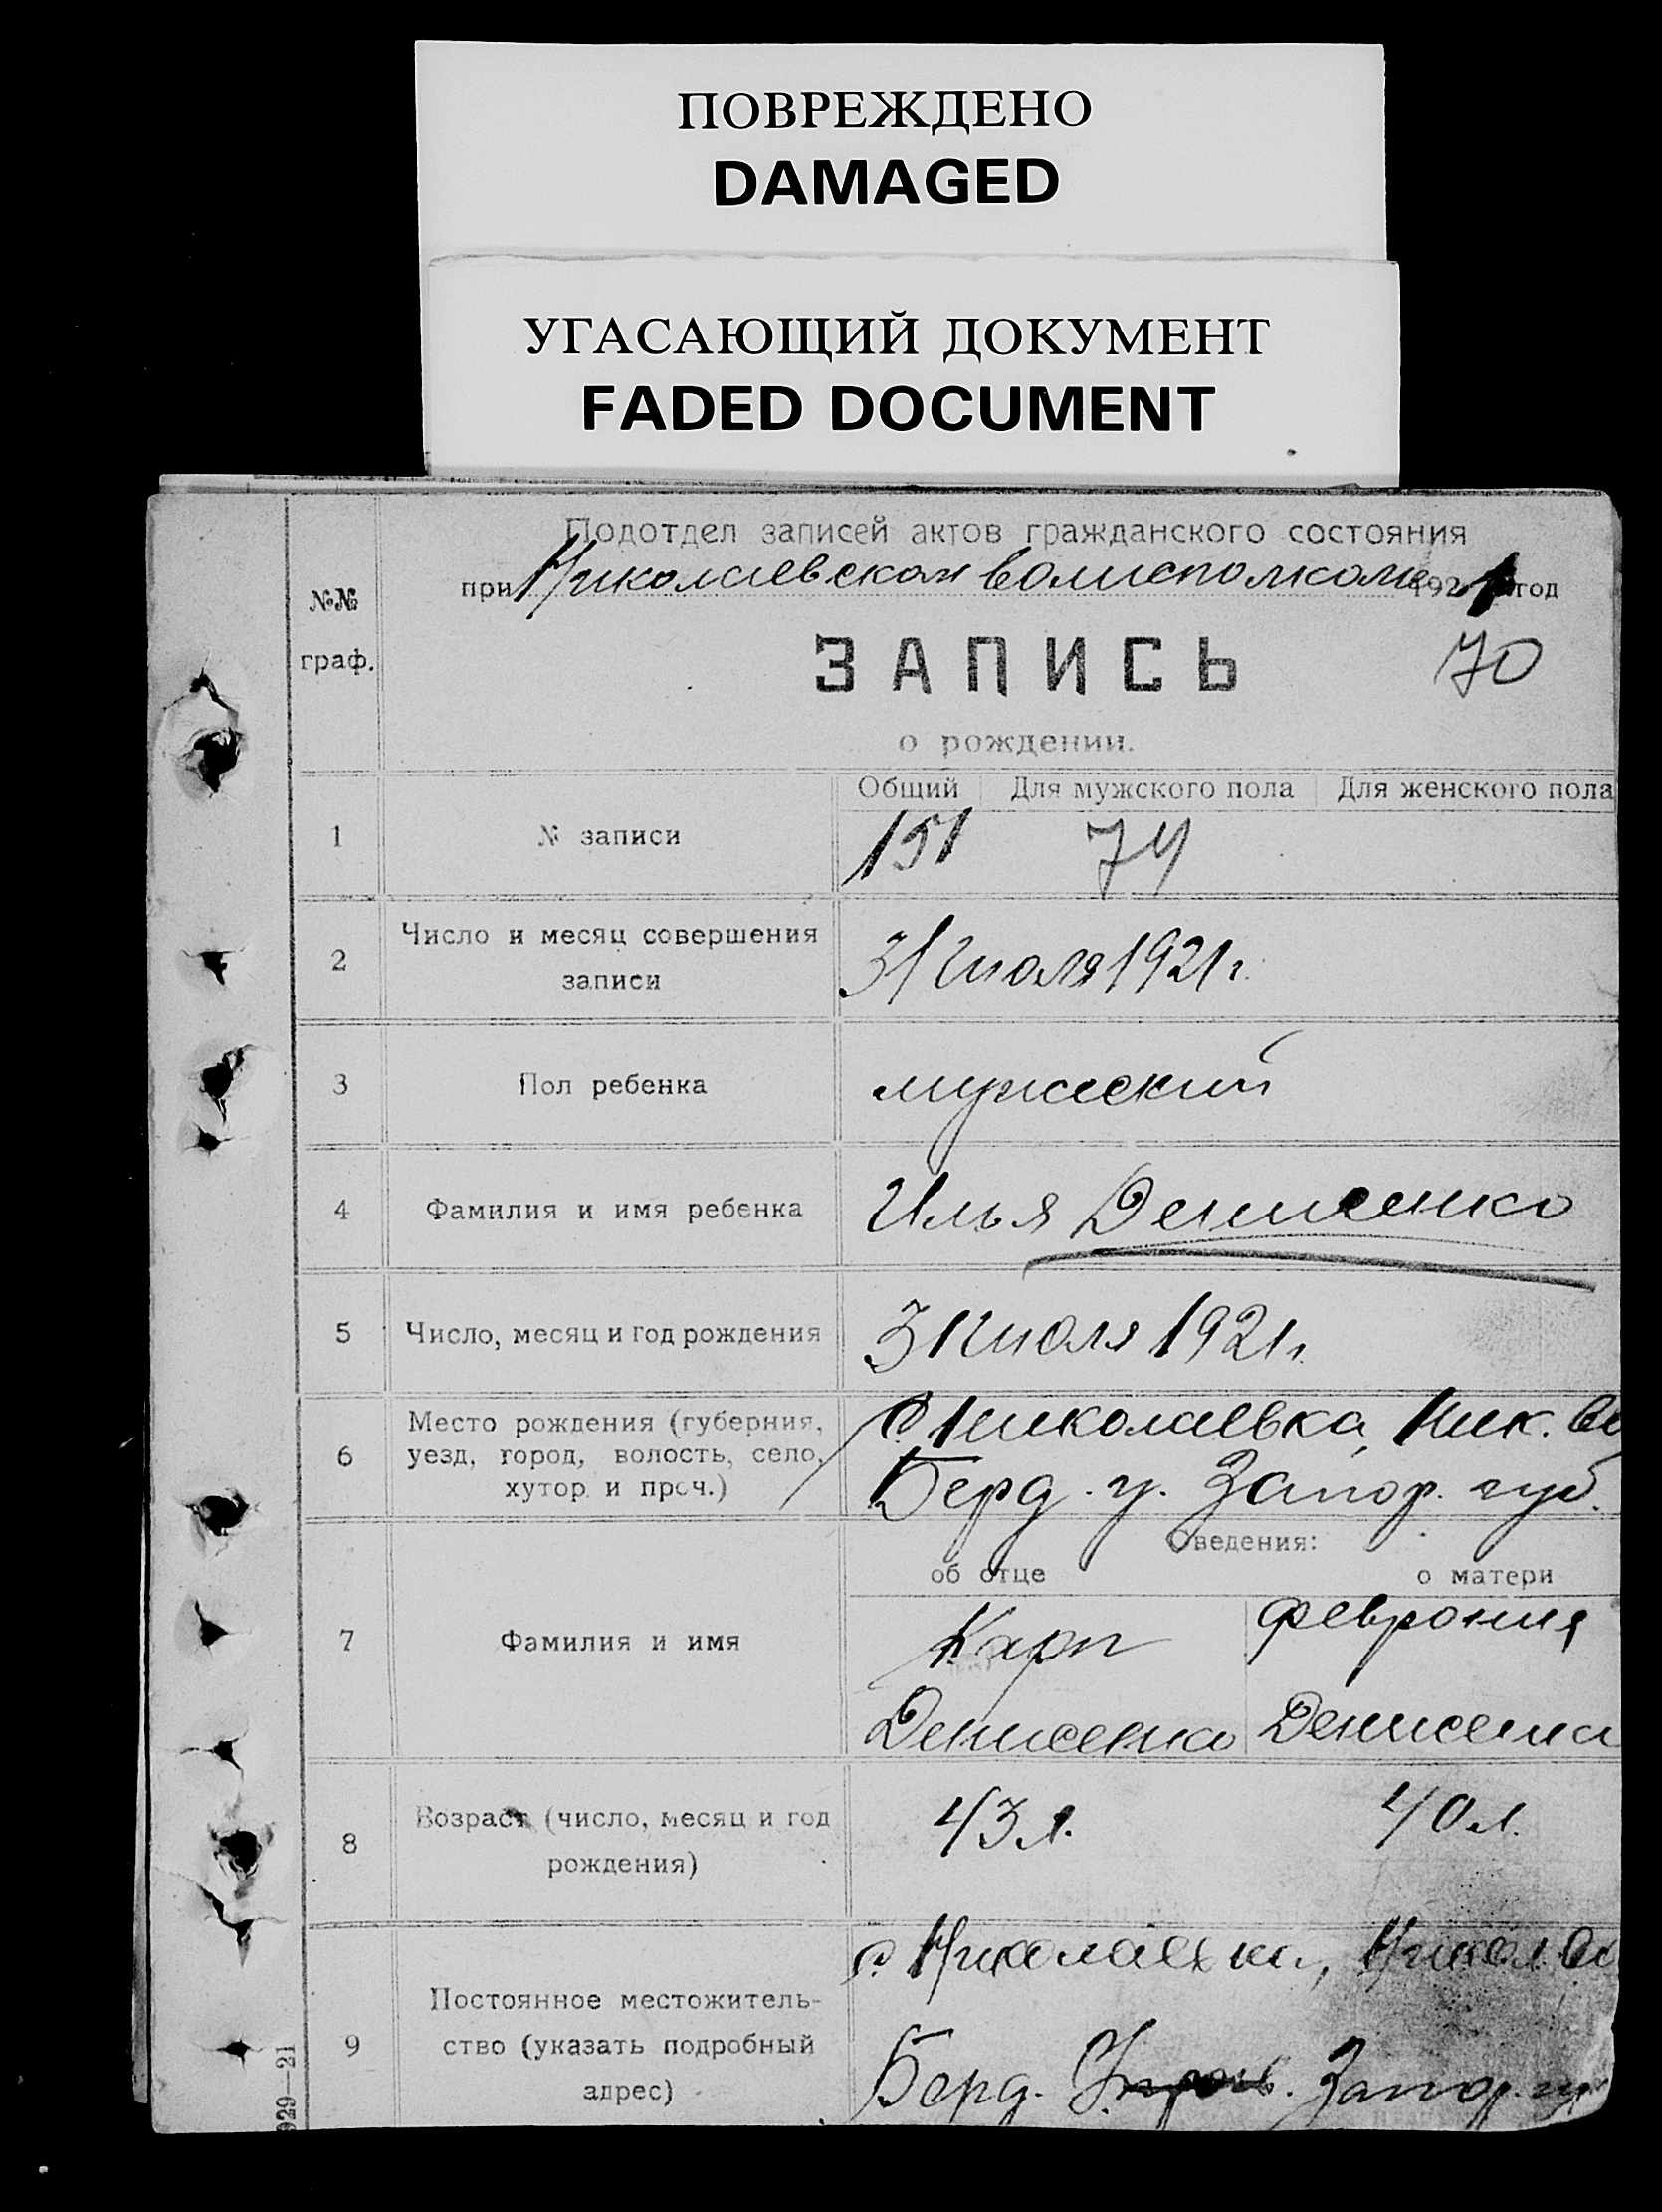 ПОВРЕЖДЕНО
DAMAGED
УГАСАЮЩИЙ ДОКУМЕНТ
FADED DOCUMENT
№№
граф.
Подотдел записей актов гражданского состояния
при Николаевском волисполкоме 1921 год
ЗАПИСЬ
70
о рождении.
Общий Для мужского пола Для женского пола
1 № записи 151 74
2 Число и месяц совершения
записи
31 июля 1921 г.
3 Пол ребенка мужеский
4 Фамилия и имя ребенка Илья Денисенко
5 Число, месяц и год рождения 31 июля 1921 г.
6 Место рождения (губерния,
уезд, город, волость, село,
хутор и проч.)
с. Николаевка, Ник. во
Берд. у. Запор. губ.
Сведения:
об отце о матери
7 Фамилия и имя
Карп Феврония
Денисенко Денисенко
8 Возраст (число, месяц и год
рождения)
43 л. 40 л.
9 Постоянное местожитель-
ство (указать подробный
адрес)
с. Николаевка, Никол. во
Берд. Запор. гу
929—21